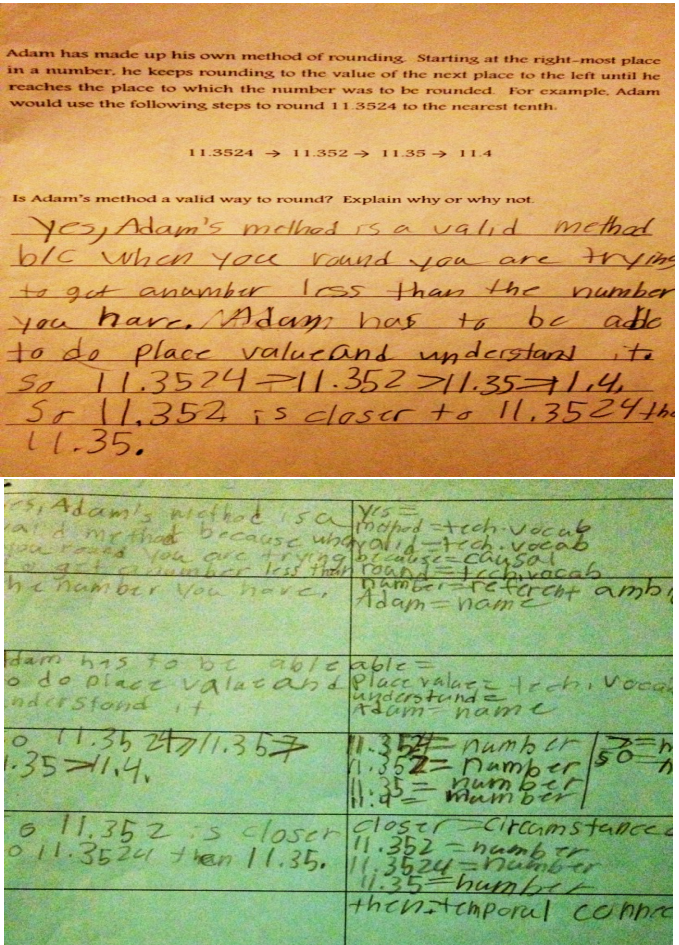 Adam has made up his own method of rounding. Starting at the right-most place
in a number, he keeps rounding to the value of the next place to the left until he
reaches the place to which the number was to be rounded. For example, Adam
would use the following steps to round 11.3524 to the nearest tenth.
11.3524 → 11.352 → 11.35 → 11.4
Is Adam's method a valid way to round? Explain why or why not.
Yes, Adam's method is a valid method
b/c when you round you are trying
to get anumber less than the number
you have. Adam has to be able
to do place value and understand it.
So 11.3524→11.352→11.35→11.4.
So 11.352 is closer to 11.3524 tha
11.35.
es, Adam's method is a
valid method because when
you round you are trying
to get a number less than
the number you have.
yes =
method = tech. vocab
valid = tech. vocab
because = causal
round = tech. vocab
number = referent ambi
Adam = name
Adam has to be able
to do place value and
understand it.
able =
place value = tech. voca
understand =
Adam = name
o 11.3524→11.352→
.35→11.4.
11.3524 = number
11.352 = number
11.35 = number
11.4 = number
so =
o 11.352 is closer
o 11.3524 then 11.35.
closer = circumstance
11.352 = number
11.3524 = number
11.35 = number
then = temporal connec